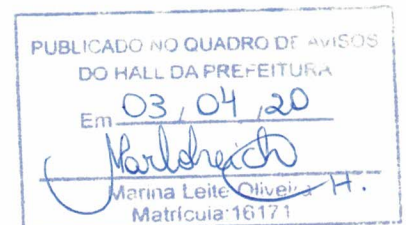 PUBLICADO NO QUADRO DE AVISOS
DO HALL DA PREFEITURA
Em 03 / 04 / 20
Marina Leite Oliveira H.
Matrícula:16171